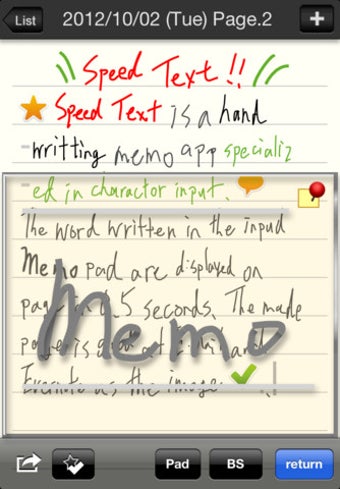 List
2012/10/02 (Tue) Page.2
+
Speed Text!!
Speed Text is a hand
writting memo app specializ
ed in charactor input.
The word written in the input
Memo pad are displayed on
page in 0.5 seconds. The made
page is
Evernote as the image
Memo
Pad
BS
return